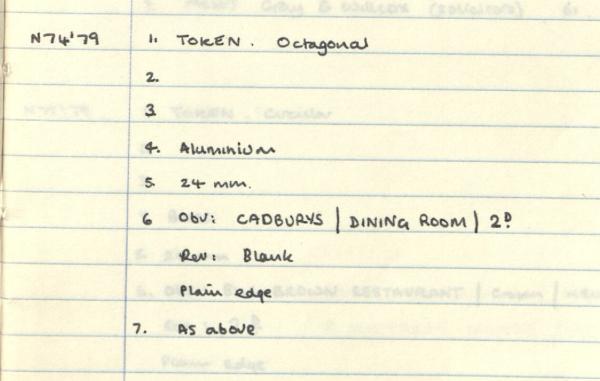 N74'79 1. TOKEN. Octagonal
2.
3
4. Aluminium
5. 24 mm.
6 Obv: CADBURYS | DINING ROOM | 2D
Rev: Blank
Plain edge
7. As above